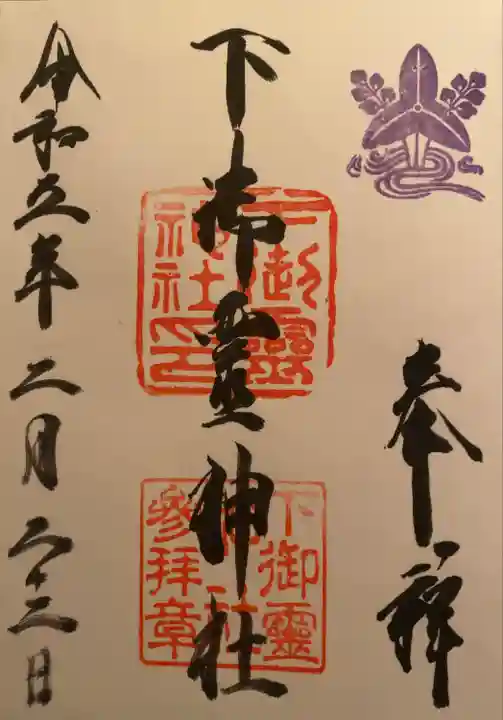 奉拝
下御靈神社
下御靈神社印
下御靈神社参拜章
令和五年二月二十三日